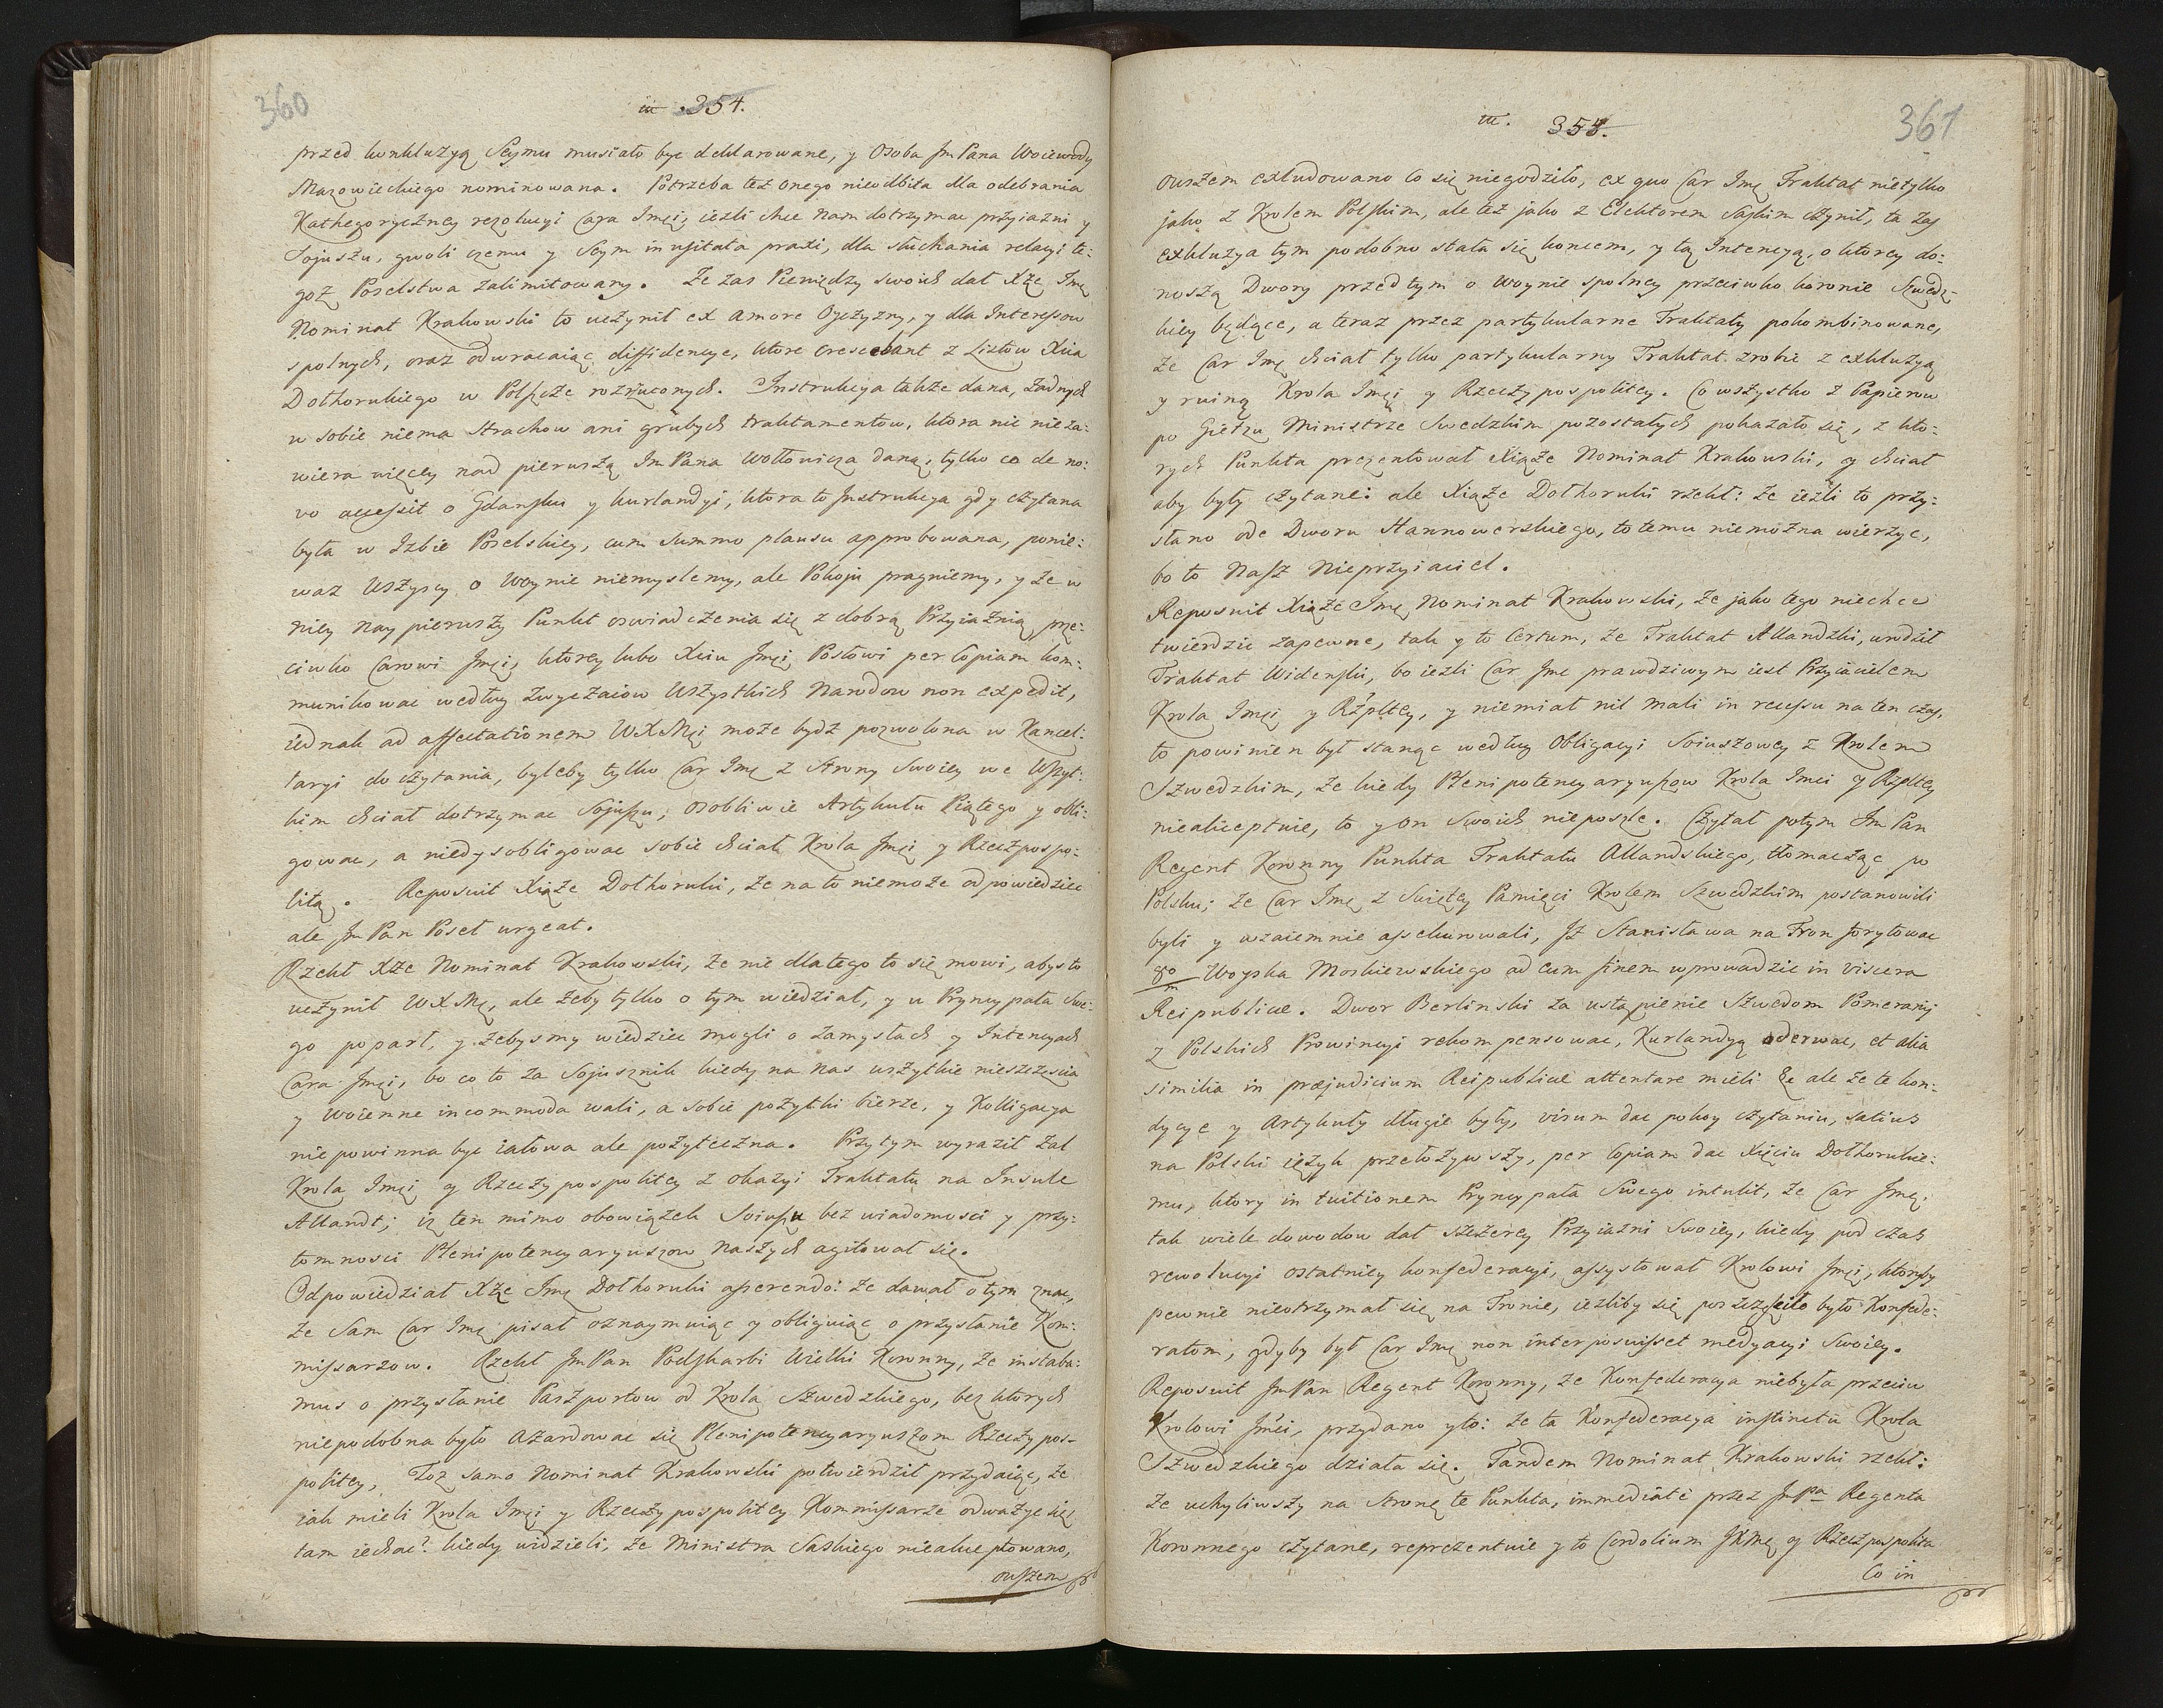 360
m. 354.
przed konkluzyą Seymu musiało byc deklarowane, y Osoba Jm Pana Woiewody
Mazowieckiego nominowana. Potrzeba też onego nieodbita dla odebrania
Kathegoryczney rezolucyi Cara Jmęi, ieżli chce nam dotrzymac przyiazni y
Sojuszu, gwoli czemu y Seym inusitata praxi, dla słuchania relacyi te:
goż Poselstwa zalimitowany. Że zas Pieniędzy swoich dał Xże Jmę
Nominat Krakowski to uczynił ex amore Oyczyzny, y dla Interessow
spolnych, oraz odwracaiąc diffidencye, ktore crescebant z Listow Xcia
Dołhorukiego w Polszcze rozrzuconych. Instrukcya także dana, żadnych
w sobie niema strachow ani grubych traktamentow, ktora nic nieza:
wiera więcey nad pierwszą Jm Pana Wołłowicza daną, tylko co de no:
vo accessit o Gdansku y Kurlandyi, ktora to Instrukcya gdy czytana
była w Izbie Poselskiey, cum summo plausu approbowana, ponie:
waz wszyscy o Woynie niemyslemy, ale Pokoju pragniemy, y że w
niey naypierwszy Punkt oswiadczenia się z dobrą Przyiaznią prze:
ciwko Carowi Jmęi, ktorey lubo Xciu Jmęi Posłowi per Copiam kom:
munikowac według zwyczaiow wszystkich Narodow non expedit,
iednak ad affectationem WXMęi może bydz pozwolona w Kancel:
laryi do czytania, byleby tylko Car Jmę z Strony Swoiey we wszyt:
kim chciał dotrzymac Sojuszu, osobliwie Artykułu Piątego y obli:
gowac, a niedysobligowac sobie chciał Krola Jmęi y Rzeczpospo:
litą. Reposuit Xiąże Dołhoruki, że na to niemoże odpowiedziec
ale Jm Pan Poseł urgeat.
Rzekł Xże Nominat Krakowski, że nie dlatego to się mowi, abys to
uczynił WXMę, ale żeby tylko o tym wiedział, y u Pryncypała Swe:
go poparł, y żebysmy wiedziec mogli o zamysłach y Intencyach
Cara Jmęi, bo co to za Sojusznik kiedy na nas wszytkie nieszczęscia
y woienne incommoda wali, a sobie pożytki bierze, y Kolligacya
niepowinna byc iałowa ale pożyteczna. Przytym wyraził żal
Krola Jmęi y Rzeczypospolitey z okazyi Traktatu na Insule
Allandt; iż ten mimo obowiązek Soiuszu bez wiadomosci y przy:
tomnosci Plenipotencyaryuszow naszych agitował się.
Odpowiedział Xże Jmę Dołhoruki asserendo: że dawał o tym znac,
że Sam Car Jmę pisał oznaymuiąc y obliguiąc o przysłanie Kom:
missarzow. Rzekł Jm Pan Podskarbi Wielki Koronny, że instaba:
mus o przysłanie Paszportow od Krola Szwedzkiego, bez ktorych
niepodobna było azardowac się Plenipotencyaryuszom Rzeczypos-
politey, Toż samo Nominat Krakowski potwierdził przydaiąc, że
iak mieli Krola Jmęi y Rzeczypospolitey Kommissarze odważyc się
tam iechac? kiedy widzieli, że Ministra Saskiego nieakceptowano,
owszem
361
m. 355.
owszem exkludowano co się niegodziło, ex quo Car Jmę Traktat nietylko
jako z Krolem Polskim, ale też jako z Elektorem Saskim czynił, ta zas
exkluzya tym podobno stała się koncem, y tą Intencyą, o ktorey do:
noszą Dwory przedtym o woynie spolney przeciwko koronie Szwedz-
kiey będące, a teraz przez partykularne Traktaty pokombinowane,
że Car Jmę chciał tylko partykularny Traktat zrobic z exkluzyą
y ruiną Krola Jmęi y Rzeczypospolitey. Co wszystko z Papierow
po Gietzu Ministrze Swedzkim pozostałych pokazało się, z kto:
rych Punkta prezentował Xiąże Nominat Krakowski, y chciał
aby były czytane: ale Xiąże Dołhoruki rzekł: że ieżli to przy:
słano ode Dworu Hannowerskiego, to temu niemożna wierzyc,
bo to nasz Nieprzyiaciel.
Reposuit Xiąże Jmę Nominat Krakowski, że jako tego niechce
twierdzic zapewne, tak y to certum, że Traktat Allandzki, urodził
Traktat Widenski, bo ieżli Car Jme prawdziwym iest Przyiacielem
Krola Jmęi y Rzpltey, y niemiał nil mali in recessu na ten czas,
to powinien był stanąc według Obligacyi Soiuszowey z Krolem
Szwedzkim, że kiedy Plenipotencyaryuszow Krola Jmci y Rzpltey
nieakceptuie, to y on Swoich nieposzle. Czytał potym Jm Pan
Regent Koronny Punkta Traktatu Allandskiego, tłomacząc po
Polsku; że Car Jmę z Swiętey Pamięci Krolem Szwedzkim postanowili
byli y wzaiemnie assekurowali, Jż Stanisława na Tron forytowac
80/m Woyska Moskiewskiego ad eum finem wprowadzic in viscera
Reipublicae. Dwor Berlinski za ustąpienie Szwedom Pomeranij
z Polskich Prowincyi rekompensowac, Kurlandyą oderwac, et alia
similia in praejudicium Reipublicae attentare mieli &c ale że te kon:
dycye y Artykuły długie były, visum dac pokoy czytaniu, satius
na Polski ięzyk przełożywszy, per Copiam dac Xięciu Dołhorukie:
mu, ktory in tuitionem Pryncypała Swego intulit, że Car Jmę
tak wiele dowodow dał szczerey Przyiazni Swoiey, kiedy pod czas
rewolucyi ostatniey konfederacyi, assystował Krolowi Jmęi, ktoryby
pewnie nieotrzymał się na Tronie, ieżliby się poszczęsciło było Konfede:
ratom, gdyby był Car Jmę non interposuisset medyacyi Swoiey.
Reposuit Jm Pan Regent Koronny, że Konfederacya niebyła przeciw
Krolowi Jmci, przydano y to: że ta Konfederacya instinctu Krola
Szwedzkiego działa się. Tandem Nominat Krakowski rzekł:
że uchyliwszy na Stronę te Punkta, immediate przez JmPa Regenta
Koronnego czytane, reprezentuie y to Cordolium JKMę y Rzeczpospolita
Co in